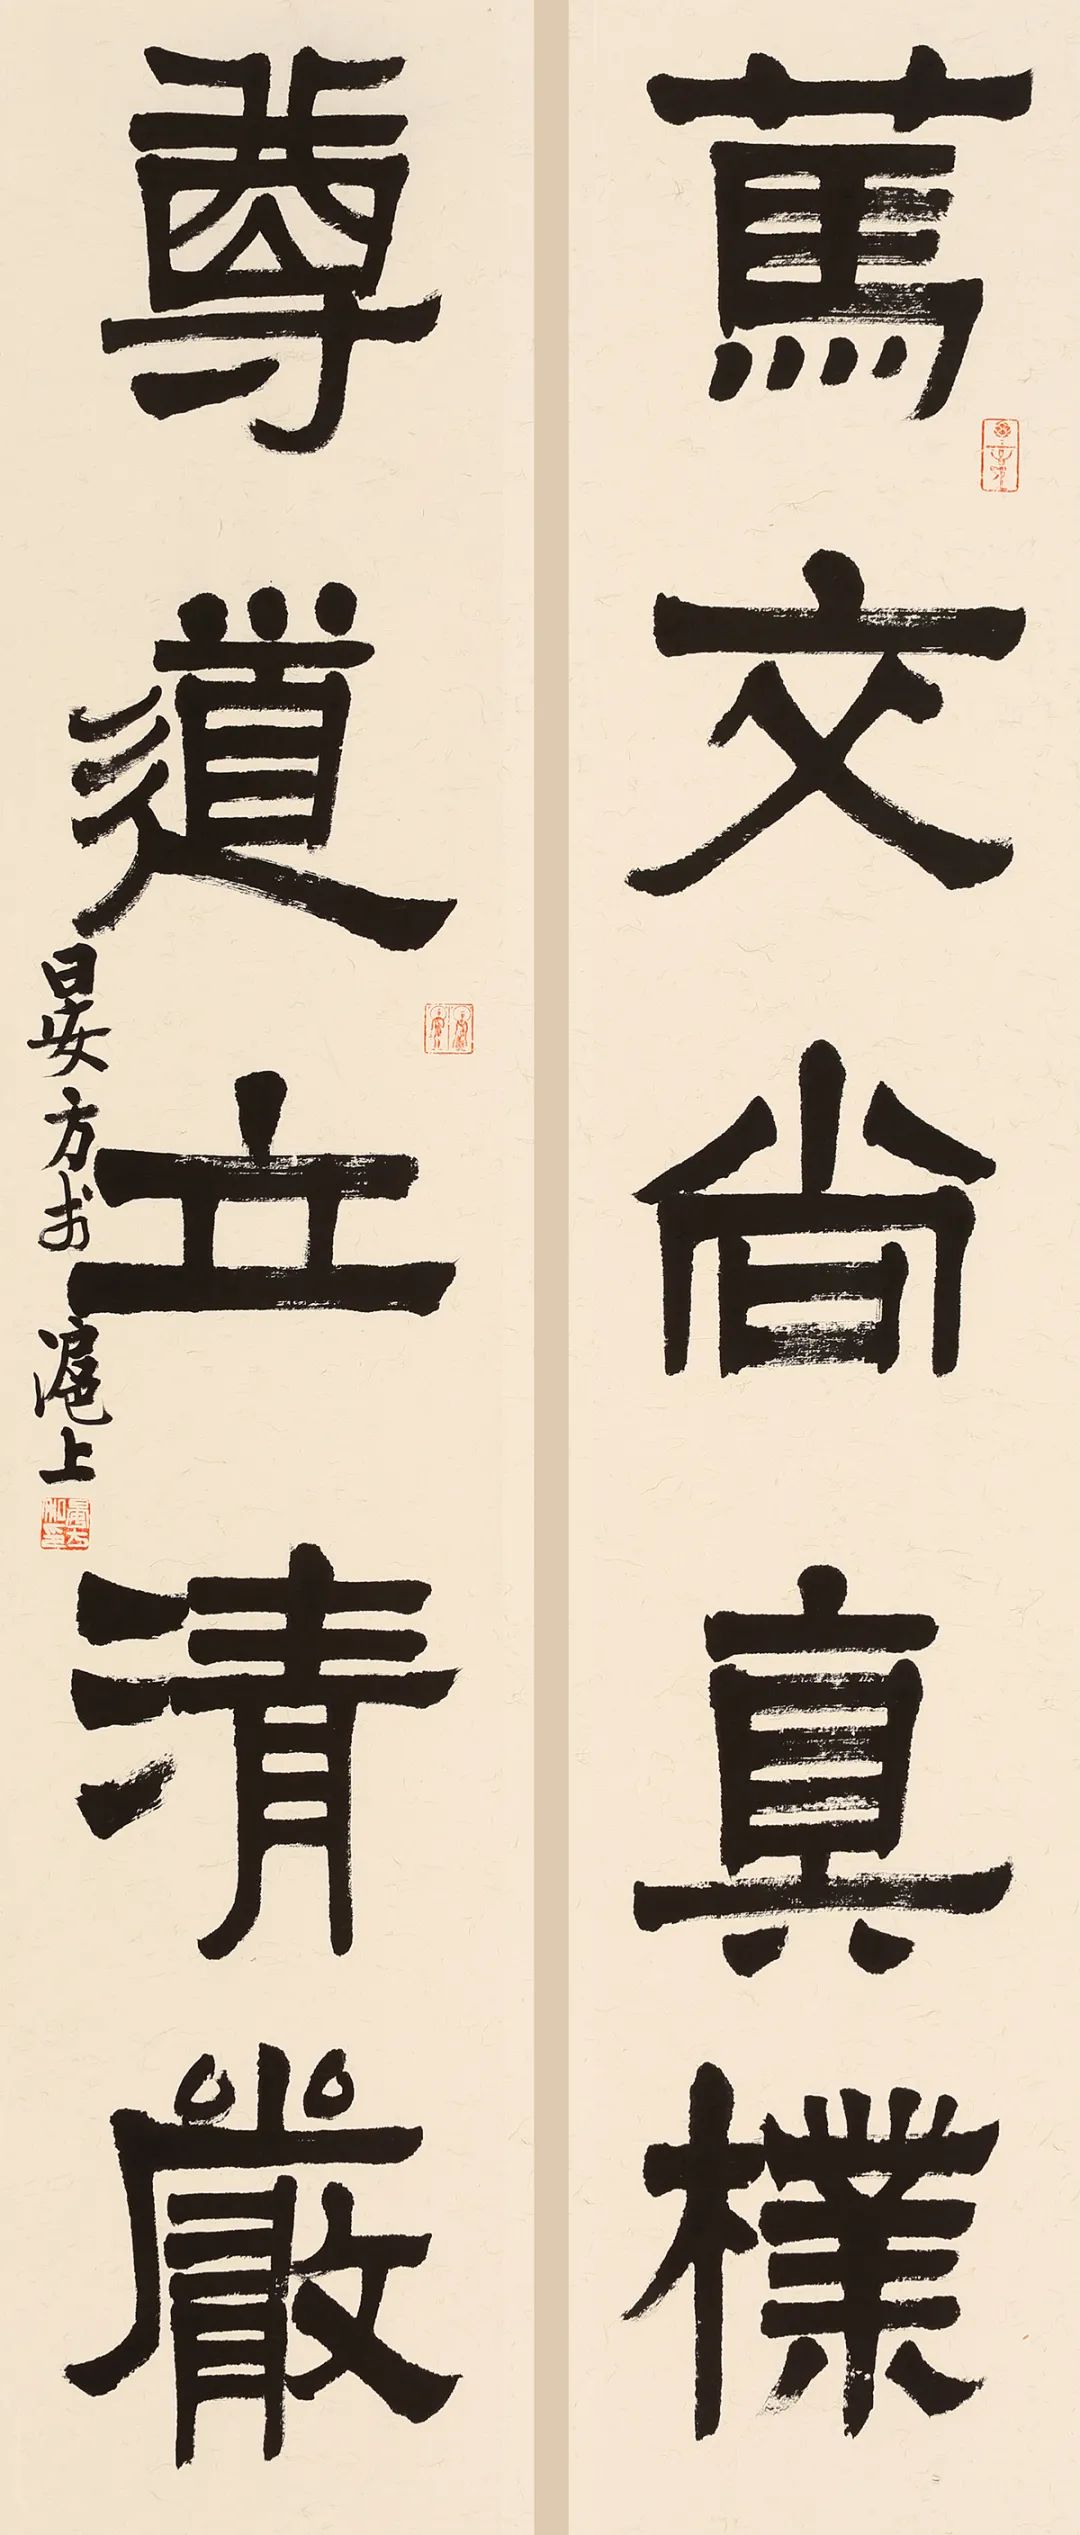 䔍交尚真樸
尊道立清嚴
晏方书滬上